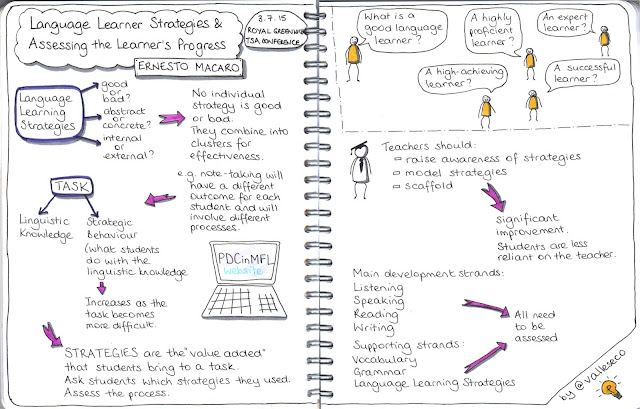 Language Learner Strategies &
Assessing the Learner's Progress
3.7.15
ROYAL GREENWICH
TSA CONFERENCE
ERNESTO MACARO
Language
Learning
Strategies
good
or
bad?
abstract
or
concrete?
internal
or
external?
No individual
strategy is good
or bad.
They combine into
clusters for
effectiveness.
e.g. note-taking will
have a different
outcome for each
student and will
involve different
processes.
TASK
Linguistic
Knowledge
Strategic
Behaviour
(what students
do with the
linguistic knowledge
Increases as the
task becomes
more difficult.
PDCinMFL
website
STRATEGIES are the "value added"
that students bring to a task.
Ask students which strategies they used.
Assess the process.
What is a
good language
learner?
A highly
proficient
learner?
An expert
learner?
A high-achieving
learner?
A successful
learner?
Teachers should:
raise awareness of strategies
model strategies
scaffold
Significant
improvement.
Students are less
reliant on the teacher.
Main development strands:
Listening
Speaking
Reading
Writing
Supporting strands:
Vocabulary
Grammar
Language Learning Strategies
All need
to be
assessed
by @vallesco